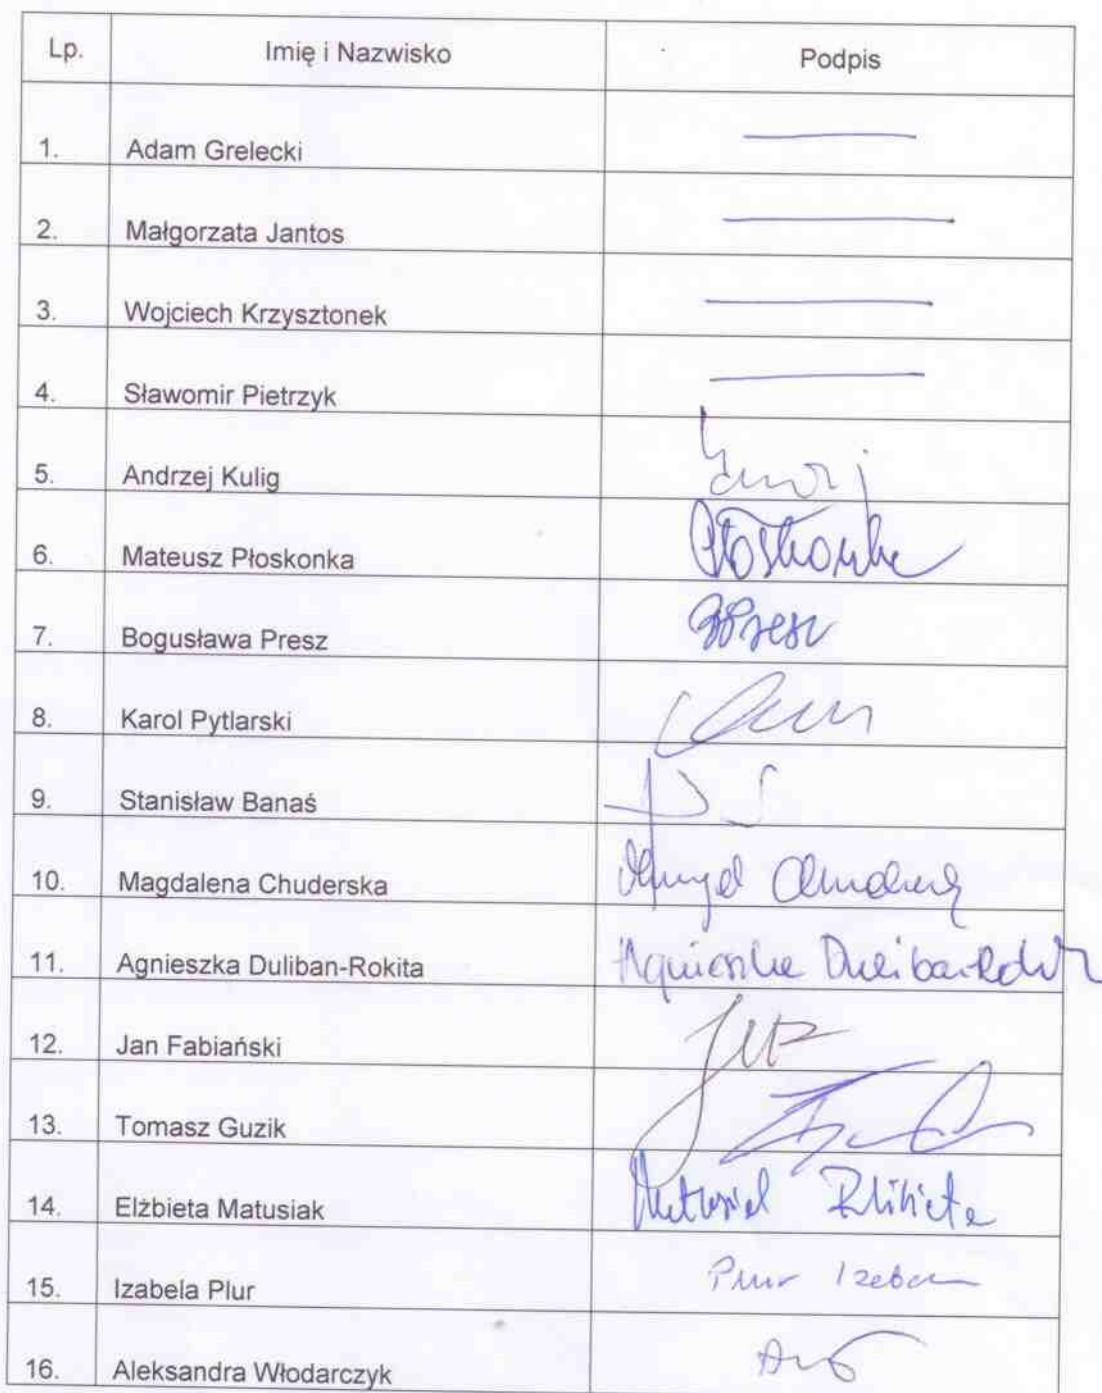 Lp. Imię i Nazwisko Podpis
1. Adam Grelecki
2. Małgorzata Jantos
3. Wojciech Krzysztonek
4. Sławomir Pietrzyk
5. Andrzej Kulig
6. Mateusz Płoskonka Płoskonka
7. Bogusława Presz BPresz
8. Karol Pytlarski
9. Stanisław Banaś
10. Magdalena Chuderska
11. Agnieszka Duliban-Rokita Agnieszka
12. Jan Fabiański
13. Tomasz Guzik
14. Elżbieta Matusiak Matusiak Elżbieta
15. Izabela Plur Plur
16. Aleksandra Włodarczyk